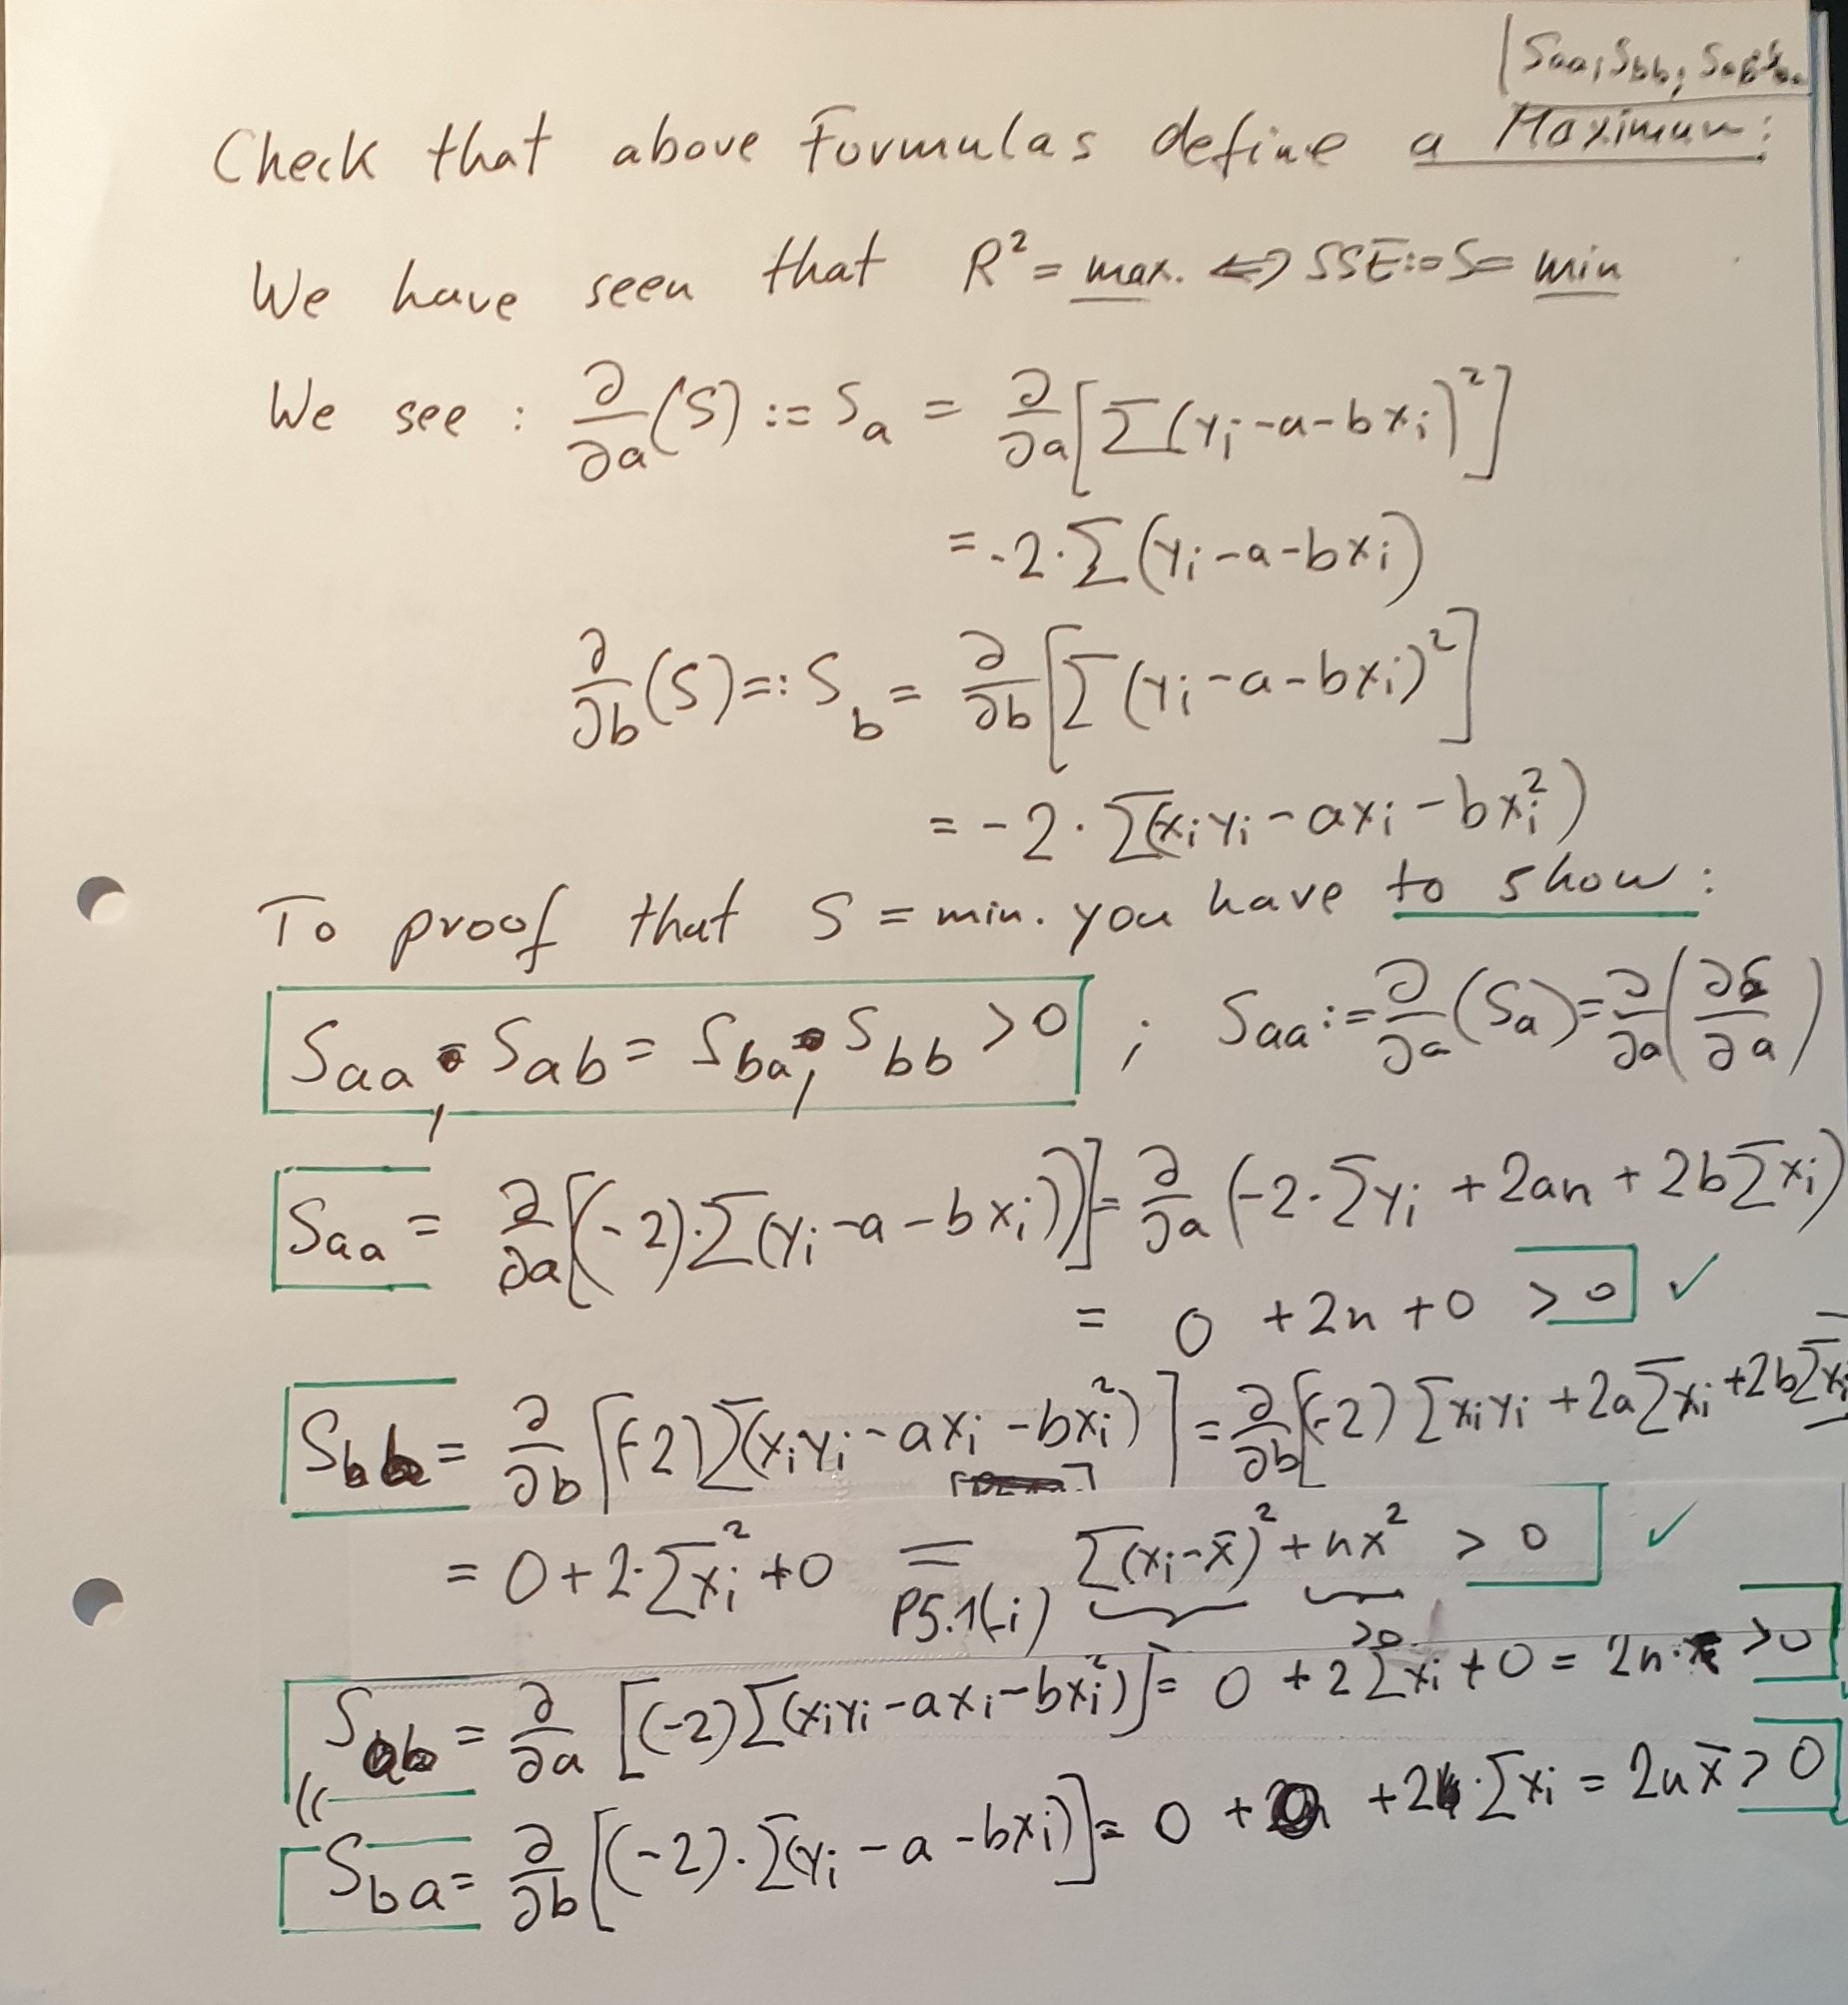 | Saa, Sbb,
Check that above Formulas define a Maximum:
We have seen that R² = max. ⟺ SSE := S = min
We see : ∂/∂a (S) := Sa = ∂/∂a [Σ(yi - a - bxi)²]
= -2·Σ(yi - a - bxi)
∂/∂b (S) =: Sb = ∂/∂b [Σ(yi - a - bxi)²]
= -2·Σ(xiyi - axi - bxi²)
To proof that S = min. you have to show:
Saa, Sab = Sba, Sbb > 0 ; Saa := ∂/∂a (Sa) = ∂/∂a (∂S/∂a)
Saa = ∂/∂a [(-2)·Σ(yi - a - bxi)] = ∂/∂a (-2·Σyi + 2an + 2bΣxi)
= 0 + 2n + 0 > 0 ✓
Sbb = ∂/∂b [(-2)Σ(xiyi - axi - bxi²)] = ∂/∂b [(-2)Σxiyi + 2aΣxi + 2bΣxi
= 0 + 2·Σxi² + 0 = Σ(xi - x̄)² + nx² > 0 ✓
P5.1(i) >0
Sab = ∂/∂a [(-2)Σ(xiyi - axi - bxi²)] = 0 + 2Σxi + 0 = 2n· > 0
"
Sba = ∂/∂b [(-2)·Σ(yi - a - bxi)] = 0 + + 2·Σxi = 2nx̄ > 0